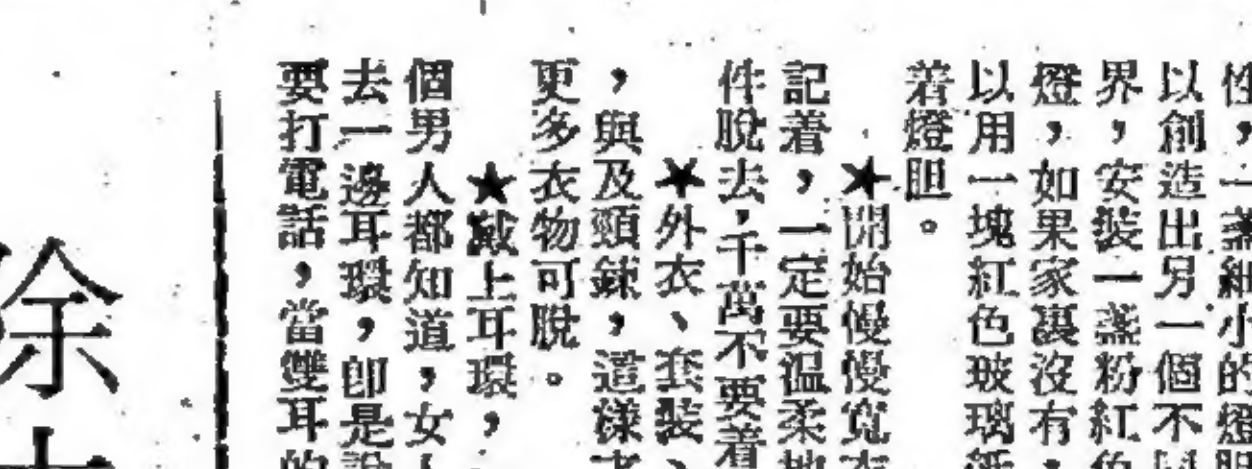 性，一盞細小的燈胆
以創造出另一個不
界，安裝一盞粉紅色
燈，如果家裏沒有，
以用一塊紅色玻璃紙
着燈胆。
★開始慢慢寬衣
記着，一定要溫柔地
件脫去，千萬不要着
★外衣、套裝、
，與及頸鍊，這樣才
更多衣物可脫。
★戴上耳環，
個男人都知道，女人
去一邊耳環，卽是說
要打電話，當雙耳的
除